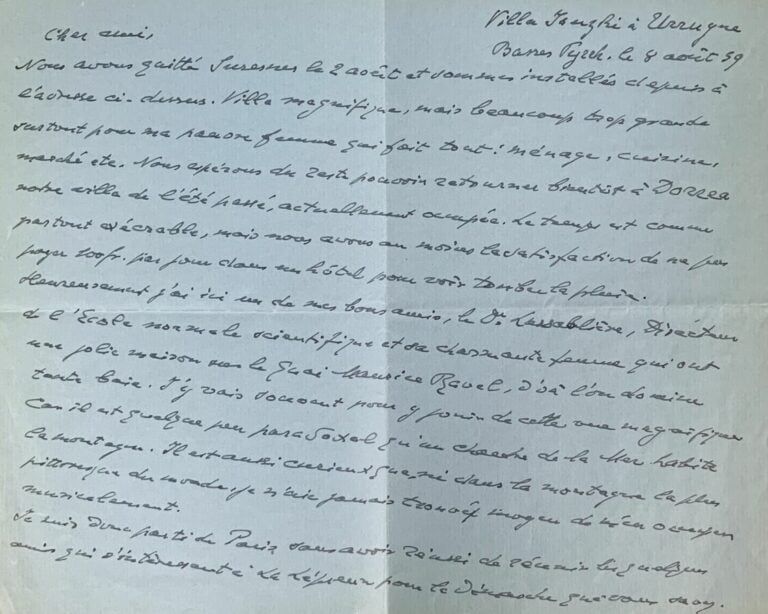 Villa à Urrugne
Basses Pyrén. le 8 août 59
Cher ami,
Nous avons quitté Suresnes le 2 août et sommes installés depuis à
l'adresse ci-dessus. Villa magnifique, mais beaucoup trop grande
surtout pour ma pauvre femme qui fait tout : ménage, cuisine,
marché etc. Nous espérons du reste pouvoir retourner bientôt à
notre villa de l'été passé, actuellement occupée. Le temps est comme
partout exécrable, mais nous avons au moins la satisfaction de ne pas
payer 100 fr. par jour dans un hôtel pour voir tomber la pluie.
Heureusement j'ai ici un de mes bons amis, le Dr. Directeur
de l'Ecole normale scientifique et sa charmante femme qui ont
une jolie maison sur le Quai Maurice Ravel, d'où l'on domine
toute baie. J'y vais souvent pour y jouir de cette vue magnifique
Car il est quelque peu paradoxal qu'un de la Mer habite
la montagne. Il est aussi curieux que, ni dans la montagne la plus
pittoresque du monde, je n'aie jamais trouvé moyen de m'en occuper
musicalement.
Je suis donc parti de Paris sans avoir réussi de réunir les quelques
amis qui s'intéressent à pour la démarche que vous